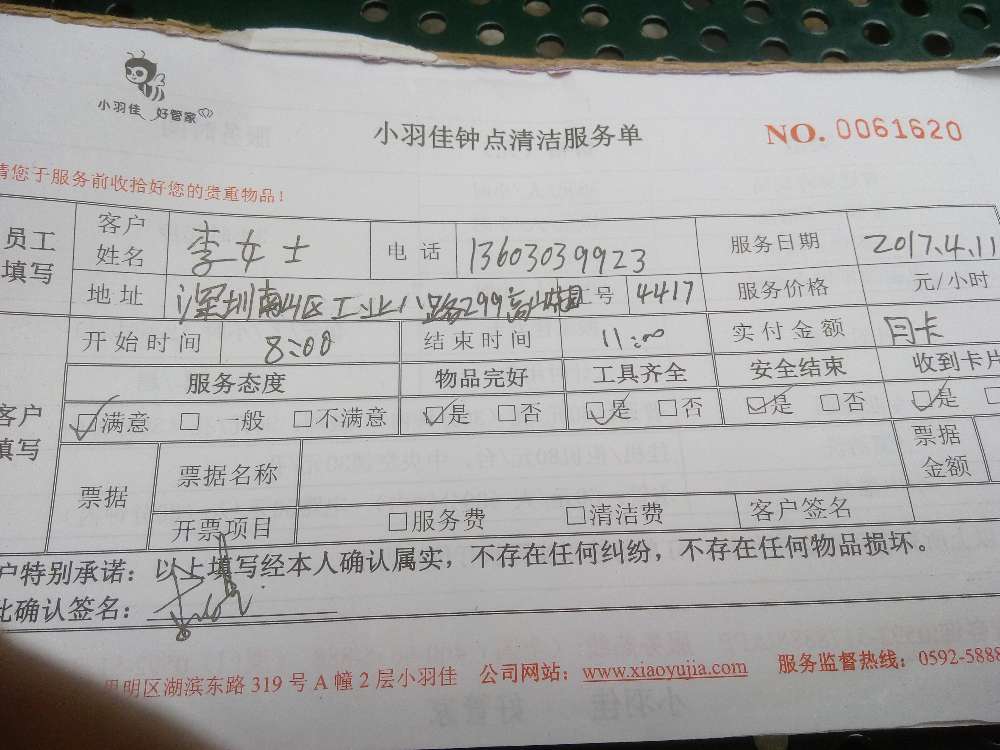 小羽佳 好管家
小羽佳钟点清洁服务单
NO. 0061620
请您于服务前收拾好您的贵重物品！
员工填写 客户姓名 李女士 电话 13603039923 服务日期 2017.4.11
地址 深圳南山区工业八路299 号 4417 服务价格 元/小时
客户填写 开始时间 8:00 结束时间 11:00 实付金额 月卡
服务态度 物品完好 工具齐全 安全结束 收到卡片
☑满意 □一般 □不满意 ☑是 □否 ☑是 □否 ☑是 □否 ☑是 □
票据 票据名称 票据金额
开票项目 □服务费 □清洁费 客户签名
户特别承诺：以上填写经本人确认属实，不存在任何纠纷，不存在任何物品损坏。
此确认签名：
思明区湖滨东路 319 号 A 幢 2 层小羽佳 公司网站：www.xiaoyujia.com 服务监督热线：0592-5888